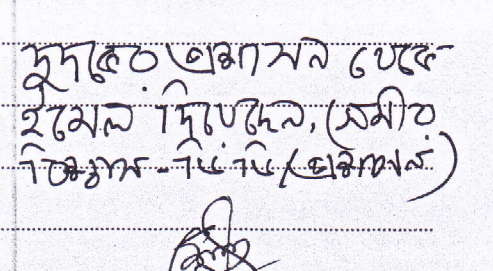 দুদকের প্রশাসন থেকে
ইমেল দিয়েছেন, (সমীর
বিশ্বাস - ডিডি/প্রশাসন)